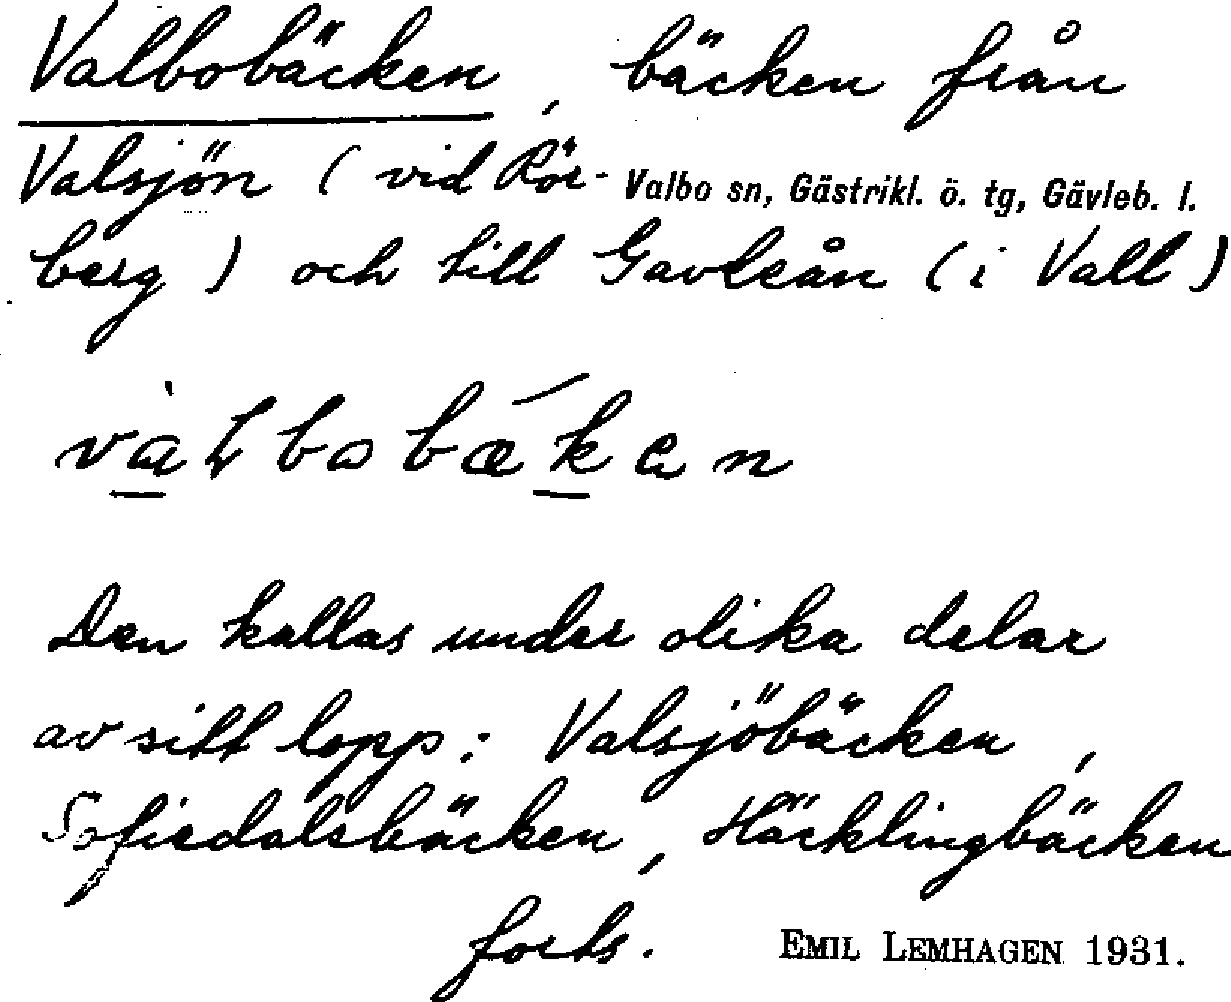 Valbobäcken, bäcken från
Valsjön (vid Rör-
Valbo sn, Gästrikl. ö. tg, Gävleb. l.
berg) och till Gavleån (i Vall)
Den kallas under olika delar
av sitt lopp: Valsjöbäcken,
Sofiedalsbäcken, Häcklingbäcken
forts.
EMIL LEMHAGEN 1931.